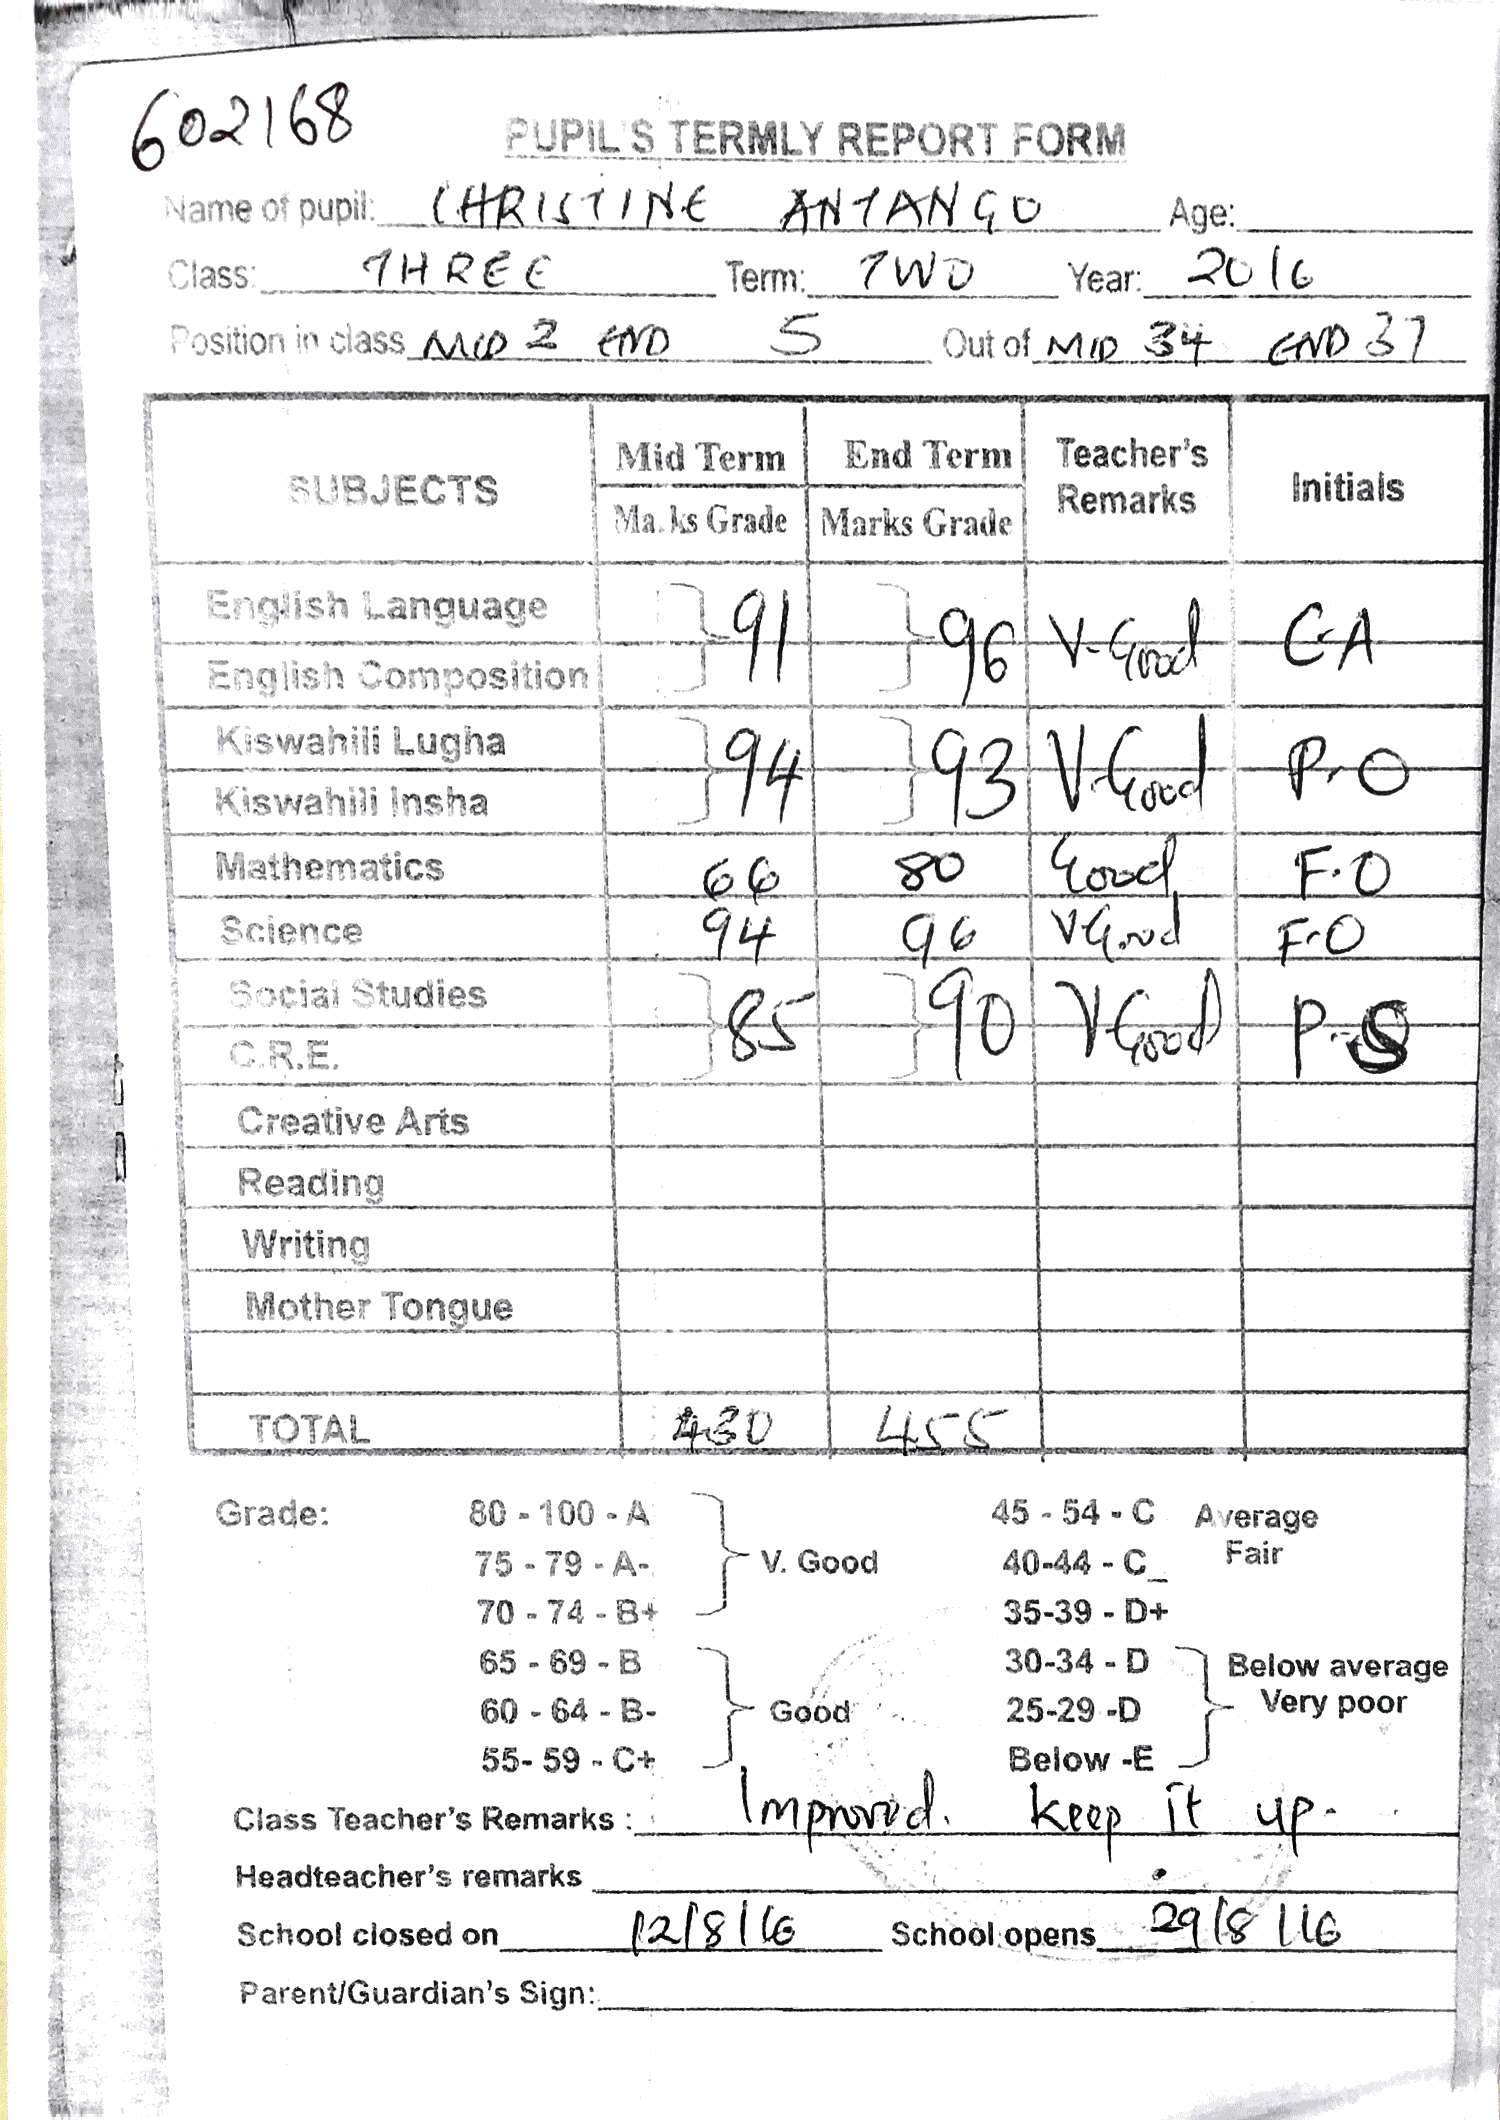 602168
PUPIL'S TERMLY REPORT FORM
Name of pupil: CHRISTINE ANTANGO Age:
Class: THREE Term: TWO Year: 2016
Position in class MID 2 END 5 Out of MID 34 END 37
SUBJECTS Mid Term End Term Teacher's Remarks Initials
Marks Grade Marks Grade
English Language
English Composition 91 96 V.Good C.A
Kiswahili Lugha
Kiswahili Insha 94 93 V.Good P.O
Mathematics 66 80 Good F.O
Science 94 96 V.Good F.O
Social Studies
C.R.E. 85 90 V.Good P.S
Creative Arts
Reading
Writing
Mother Tongue
TOTAL 430 455
Grade: 80 - 100 - A 45 - 54 - C Average
75 - 79 - A- V. Good 40-44 - C_ Fair
70 - 74 - B+ 35-39 - D+
65 - 69 - B 30-34 - D Below average
60 - 64 - B- Good 25-29 -D Very poor
55- 59 - C+ Below -E
Class Teacher's Remarks : Improved. Keep it up.
Headteacher's remarks
School closed on 12/8/16 School opens 29/8/16
Parent/Guardian's Sign: